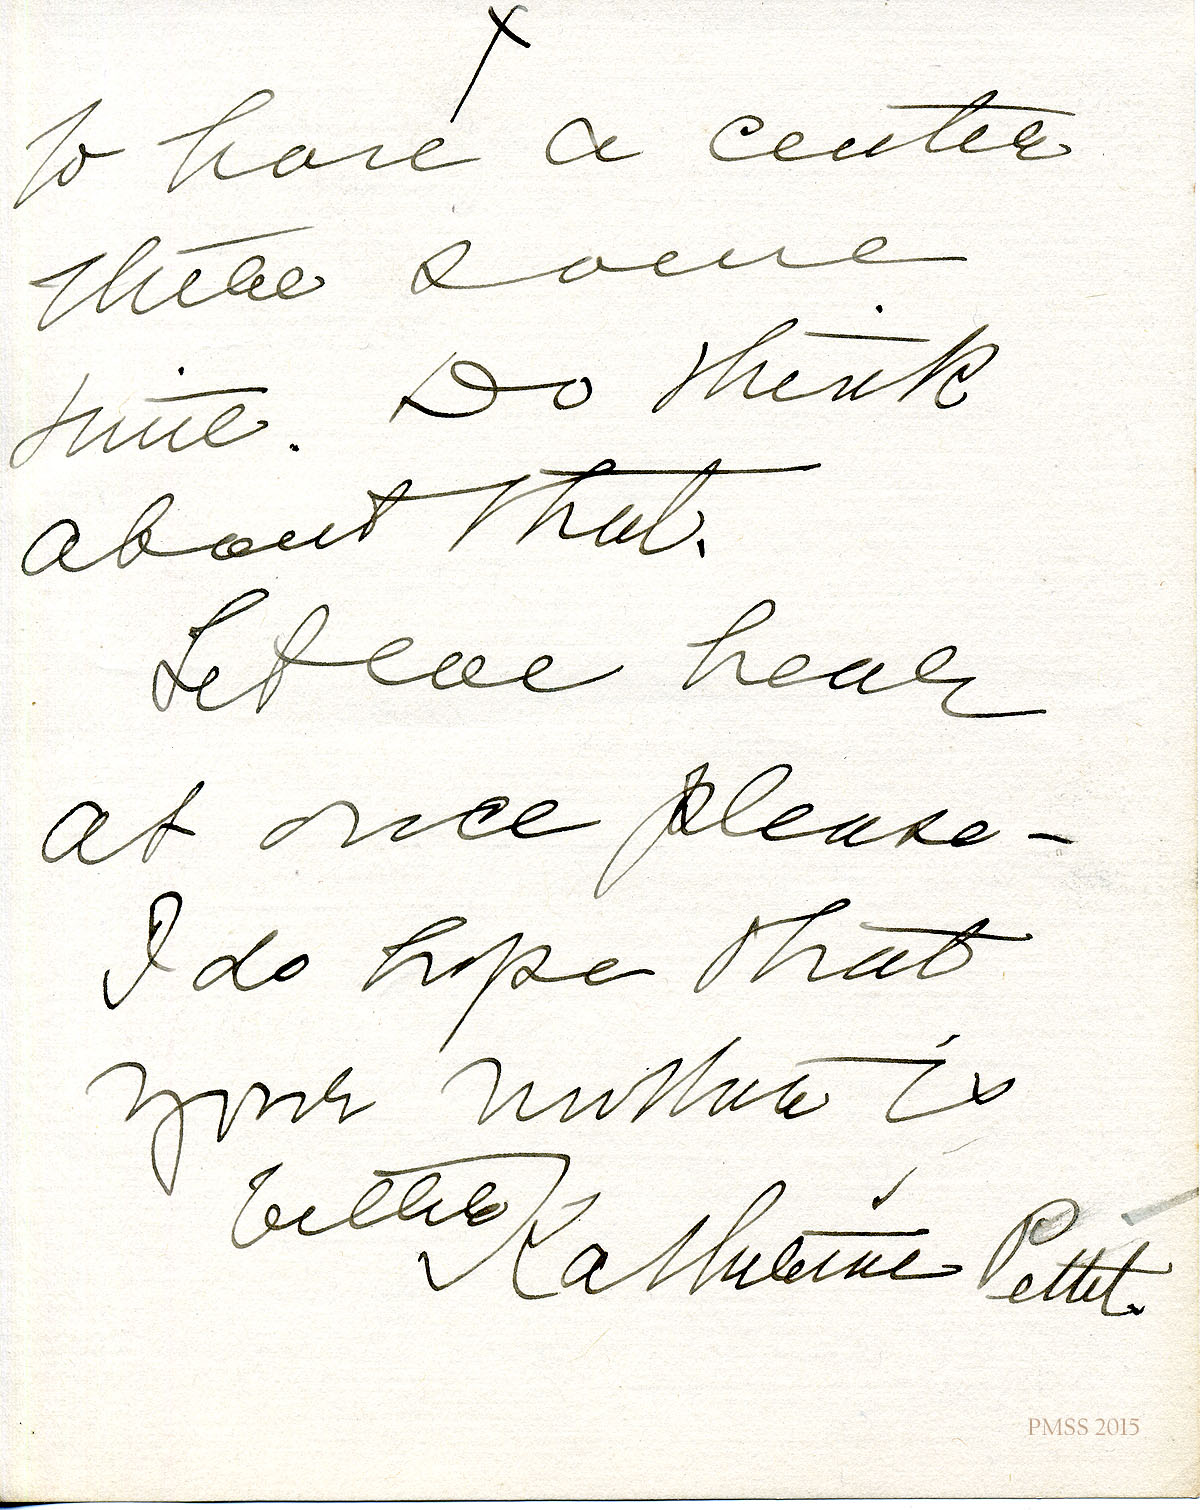 X
to have a center
there some
time. Do think
about that.
Let me hear
at once please –
I do hope that
your mother is
better
Katherine Pettit.
PMSS 2015